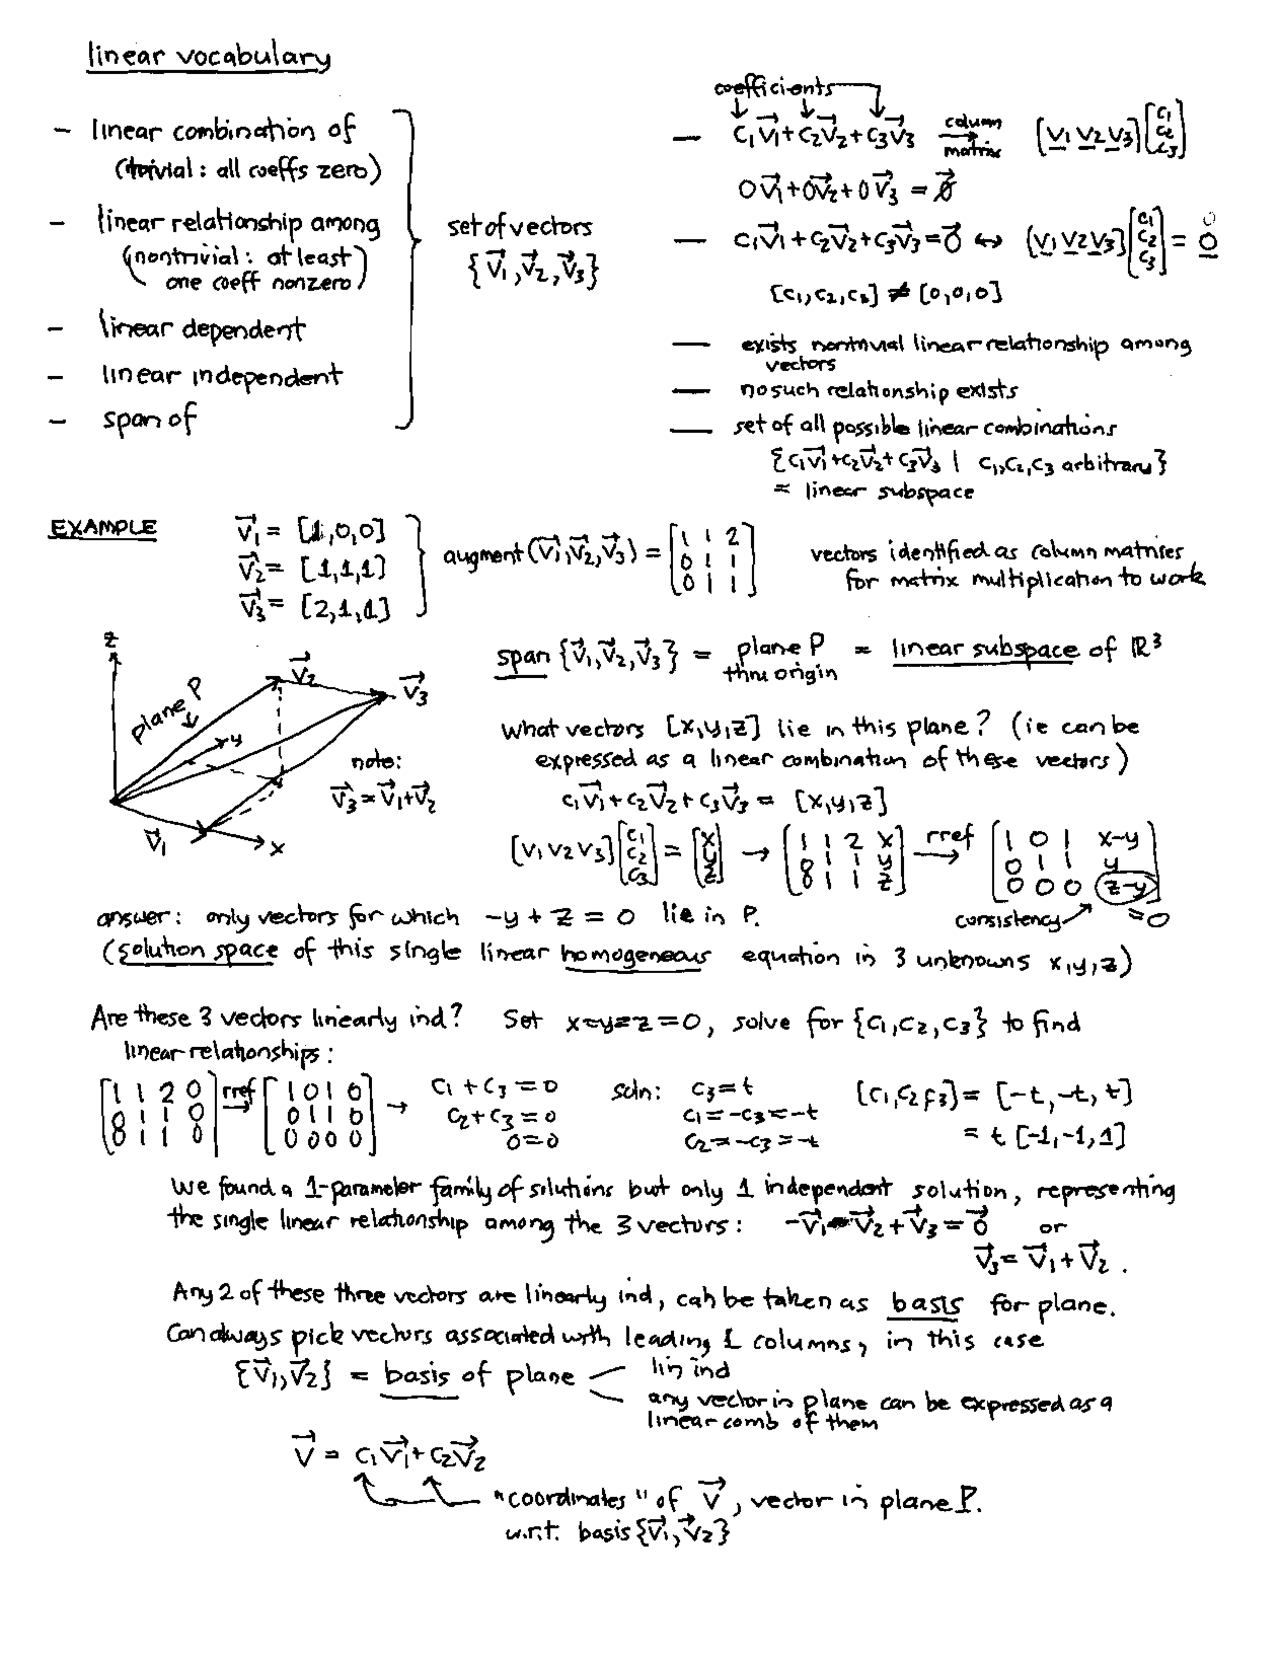 linear vocabulary
– linear combination of
(trivial: all coeffs zero)
– linear relationship among
(nontrivial: at least
one coeff nonzero)
– linear dependent
– linear independent
– span of
set of vectors
{v⃗1, v⃗2, v⃗3}
coefficients
— c1v⃗1+c2v⃗2+c3v⃗3 column matrix → [v1 v2 v3][c1 c2 c3]
0v⃗1+0v⃗2+0v⃗3 = 0⃗
— c1v⃗1+c2v⃗2+c3v⃗3=0⃗ ↔ [v1 v2 v3][c1 c2 c3] = 0
[c1,c2,c3] ≠ [0,0,0]
— exists nontrivial linear relationship among
vectors
— no such relationship exists
— set of all possible linear combinations
{c1v⃗1+c2v⃗2+c3v⃗3 | c1,c2,c3 arbitrary}
= linear subspace
EXAMPLE v⃗1 = [1,0,0]
v⃗2 = [1,1,1]
v⃗3 = [2,1,1]
augment(v⃗1,v⃗2,v⃗3) = [1 1 2
0 1 1
0 1 1]
vectors identified as column matrises
for matrix multiplication to work
z
plane P
v⃗2
v⃗3
y
note:
v⃗3=v⃗1+v⃗2
v⃗1
x
span {v⃗1,v⃗2,v⃗3} = plane P = linear subspace of ℝ3
thru origin
What vectors [x,y,z] lie in this plane? (ie can be
expressed as a linear combination of these vectors)
c1v⃗1+c2v⃗2+c3v⃗3 = [x,y,z]
[v1 v2 v3][c1 c2 c3] = [x y z] → [1 1 2 x rref → [1 0 1 x-y
0 1 1 y 0 1 1 y
0 1 1 z] 0 0 0 z-y]
consistency =0
answer: only vectors for which -y + z = 0 lie in P.
(solution space of this single linear homogeneous equation in 3 unknowns x,y,z)
Are these 3 vectors linearly ind? Set x=y=z=0, solve for {c1,c2,c3} to find
linear relationships:
[1 1 2 0 rref → [1 0 1 0 → c1+c3=0 soln: c3=t [c1,c2,c3] = [-t,-t,t]
0 1 1 0 0 1 1 0 c2+c3=0 c1=-c3=-t = t[-1,-1,1]
0 1 1 0] 0 0 0 0] 0=0 c2=-c3=-t
We found a 1-parameter family of solutions but only 1 independent solution, representing
the single linear relationship among the 3 vectors: -v⃗1-v⃗2+v⃗3=0⃗ or
v⃗3=v⃗1+v⃗2.
Any 2 of these three vectors are linearly ind, can be taken as basis for plane.
Can always pick vectors associated with leading 1 columns, in this case
{v⃗1,v⃗2} = basis of plane
lin ind
any vector in plane can be expressed as a
linear comb of them
v⃗ = c1v⃗1+c2v⃗2
"coordinates" of v⃗, vector in plane P.
w.r.t. basis{v⃗1,v⃗2}